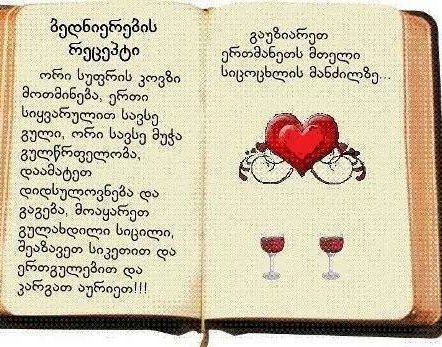 ბედნიერების
რეცეპტი
ორი სუფრის კოვზი
მოთმინება, ერთი
სიყვარულით სავსე
გული, ორი სავსე მუჭა
გულწრფელობა,
დაამატეთ
დიდსულოვნება და
გაგება, მოაყარეთ
გულახდილი სიცილი,
შეაზავეთ სიკეთით და
ერთგულებით და
კარგათ აურიეთ!!!
გაუზიარეთ
ერთმანეთს მთელი
სიცოცხლის მანძილზე...